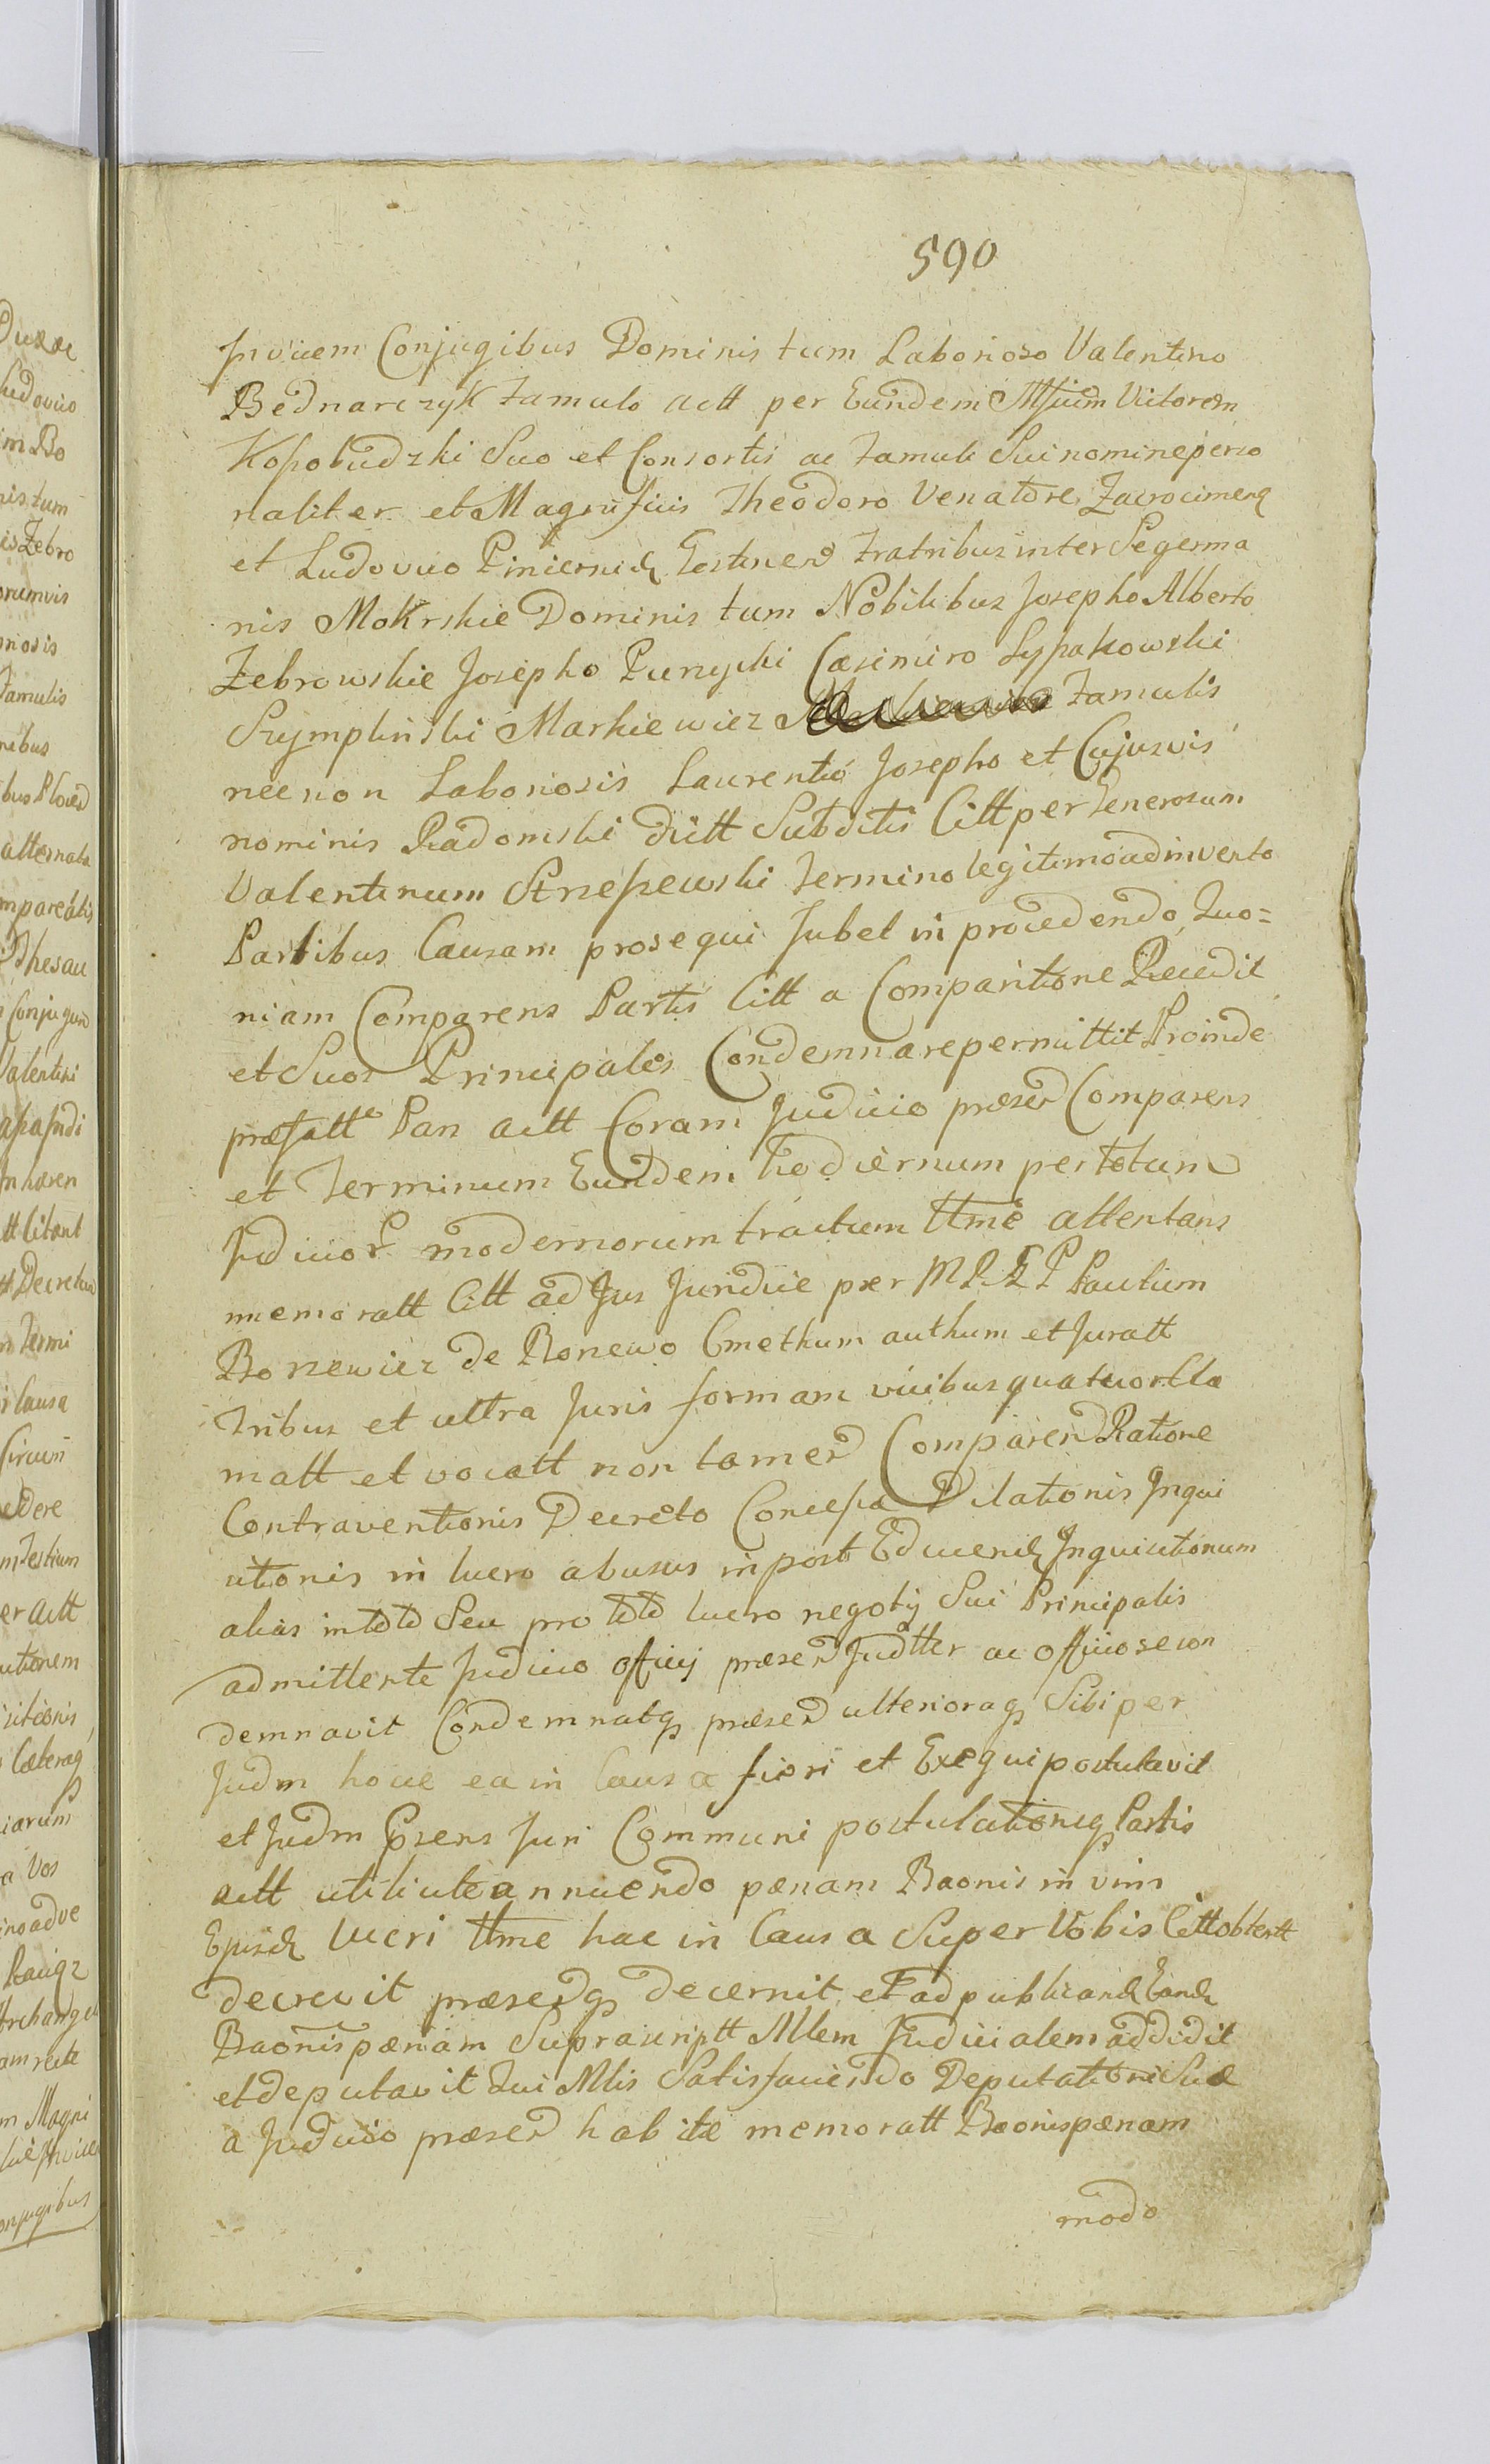 590
invicem Conjugibus Dominis tum Laborioso Valentino
Bednarczyk Famulo actt per Eundem Mfficum Victorem
Kossobudzki Suo et Consortis ac Famuli Sui nomine perso
naliter et Magnificis Theodoro Venatore Zacrocimens
et Ludovico Pincernid Gostinen Fratribus inter Se germa
nis Mokrskie Dominis tum Nobilibus Josepho Alberto
Zebrowskie Josepho Purzycki Casimiro Lypakowski
Szymplinski Markiewicz Famulis
necnon Laboriosis Laurentio Josepho et Cujusvis
nominis Radomski dictt Subditis Citt per Generosum
Valentinum Strzeszewski Termino legitimo adinvento
Partibus Causam prosequi Jubet in procedendo, Quo=
niam Comparens Partis Citt a Comparitione Recedit
et Suos Principales Condemnare permittit Proinde
præfatte Pars actt Coram Judicio præsen Comparens
et Terminum Eundem hodiernum per totum
Judicior modernorum tractum ttme attentans
memoratt Citt ad Jus Juridice per M
Borzewicz de Borzewo Cmethum authum et Juratt
Tribus et ultra Juris formam vicibus quatuor Cla
matt et vocatt non tamen Comparen Ratione
Contraventionis Decreto Concessæ Dilationis Inqui
sitionis in lucro abusus in post Educend Inquisitionum
alias in toto Seu pro toto lucro negotij Sui Principalis
admittente Judicio officij præsen Judtter ac officiose con
demnavit Condemnatq præsen ulterioraq Sibi per
Judm hocce ea in Causa fieri et Exequi postulavit
et Judm Præsens Juri Communi postulationiq Partis
actt utilicite annuendo pænam Baonis in vim
Ejusd lucri ttme hac in Causa Super Vobis Citt obtentt
decrevit præsenq decernit, et ad publicand Eand
Baonis pænam Suprascriptt Mlem Judicialem addidit
et deputavit Qui Mlis Satisfaciendo Deputationi Suæ
a Judicio præsen habitæ memoratt Baonis pænam
modo